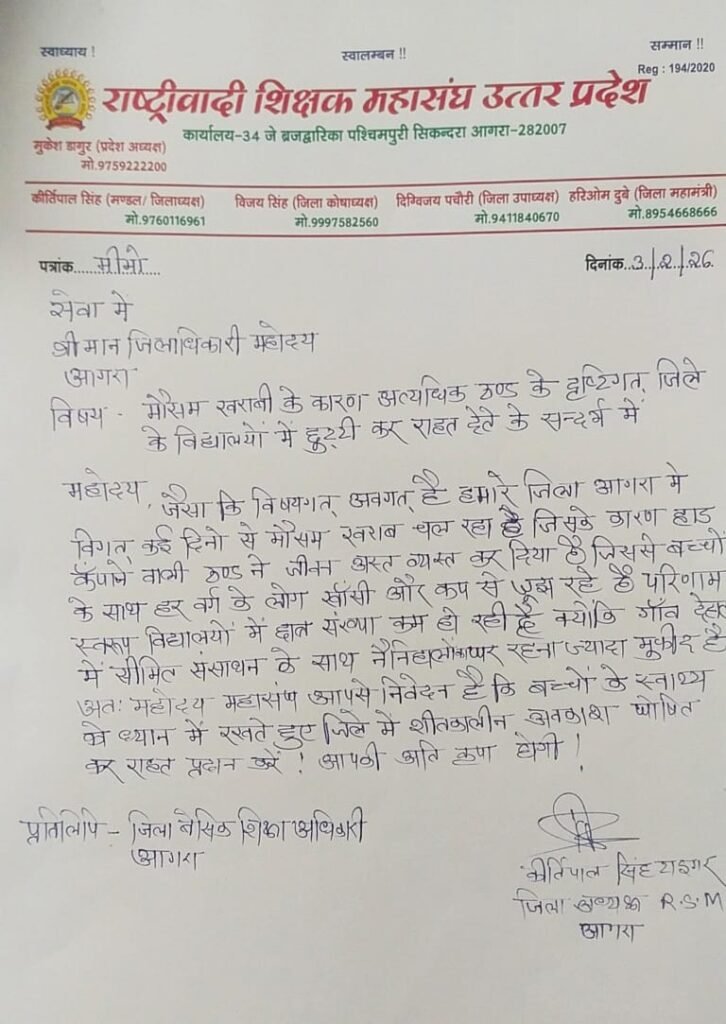 स्वाध्याय !
स्वालम्बन !!
सम्मान !!
Reg : 194/2020
राष्ट्रीवादी शिक्षक महासंघ उत्तर प्रदेश
कार्यालय-34 जे ब्रजद्वारिका पश्चिमपुरी सिकन्दरा आगरा-282007
मुकेश डागुर (प्रदेश अध्यक्ष)
मो.9759222200
कीर्तिपाल सिंह (मण्डल/ जिलाध्यक्ष) विजय सिंह (जिला कोषाध्यक्ष) दिग्विजय पचौरी (जिला उपाध्यक्ष) हरिओम दुबे (जिला महामंत्री)
मो.9760116961 मो.9997582560 मो.9411840670 मो.8954668666
पत्रांक......मीमो.... दिनांक..3/2/26
सेवा में
श्रीमान जिलाधिकारी महोदय
आगरा
विषय - मौसम खराबी के कारण अत्यधिक ठण्ड के दृष्टिगत् जिले
के विद्यालयों में छुट्टी कर राहत देने के सन्दर्भ में
महोदय, जैसा कि विषयगत् अवगत् है हमारे जिला आगरा मे
विगत् कई दिनो से मौसम खराब चल रहा है जिसके कारण हाड
कँपाने वाली ठण्ड ने जीवन अस्त व्यस्त कर दिया है जिससे बच्चों
के साथ हर वर्ग के लोग खाँसी और कफ से जूझ रहे है परिणाम
स्वरूप विद्यालयों में छात्र संख्या कम हो रही है क्योकि गाँव देहात
में सीमित संसाधन के साथ नौनिहालों रहना ज्यादा मुफीद है
अतः महोदय महासंघ आपसे निवेदन है कि बच्चों के स्वास्थ्य
को ध्यान में रखते हुए जिले मे शीतकालीन अवकाश घोषित
कर राहत प्रदान करें ! आपकी अति कृपा होगी !
प्रतिलिपि - जिला बेसिक शिक्षा अधिकारी
आगरा
कीर्तिपाल सिंह
जिला अध्यक्ष R.S.M
आगरा